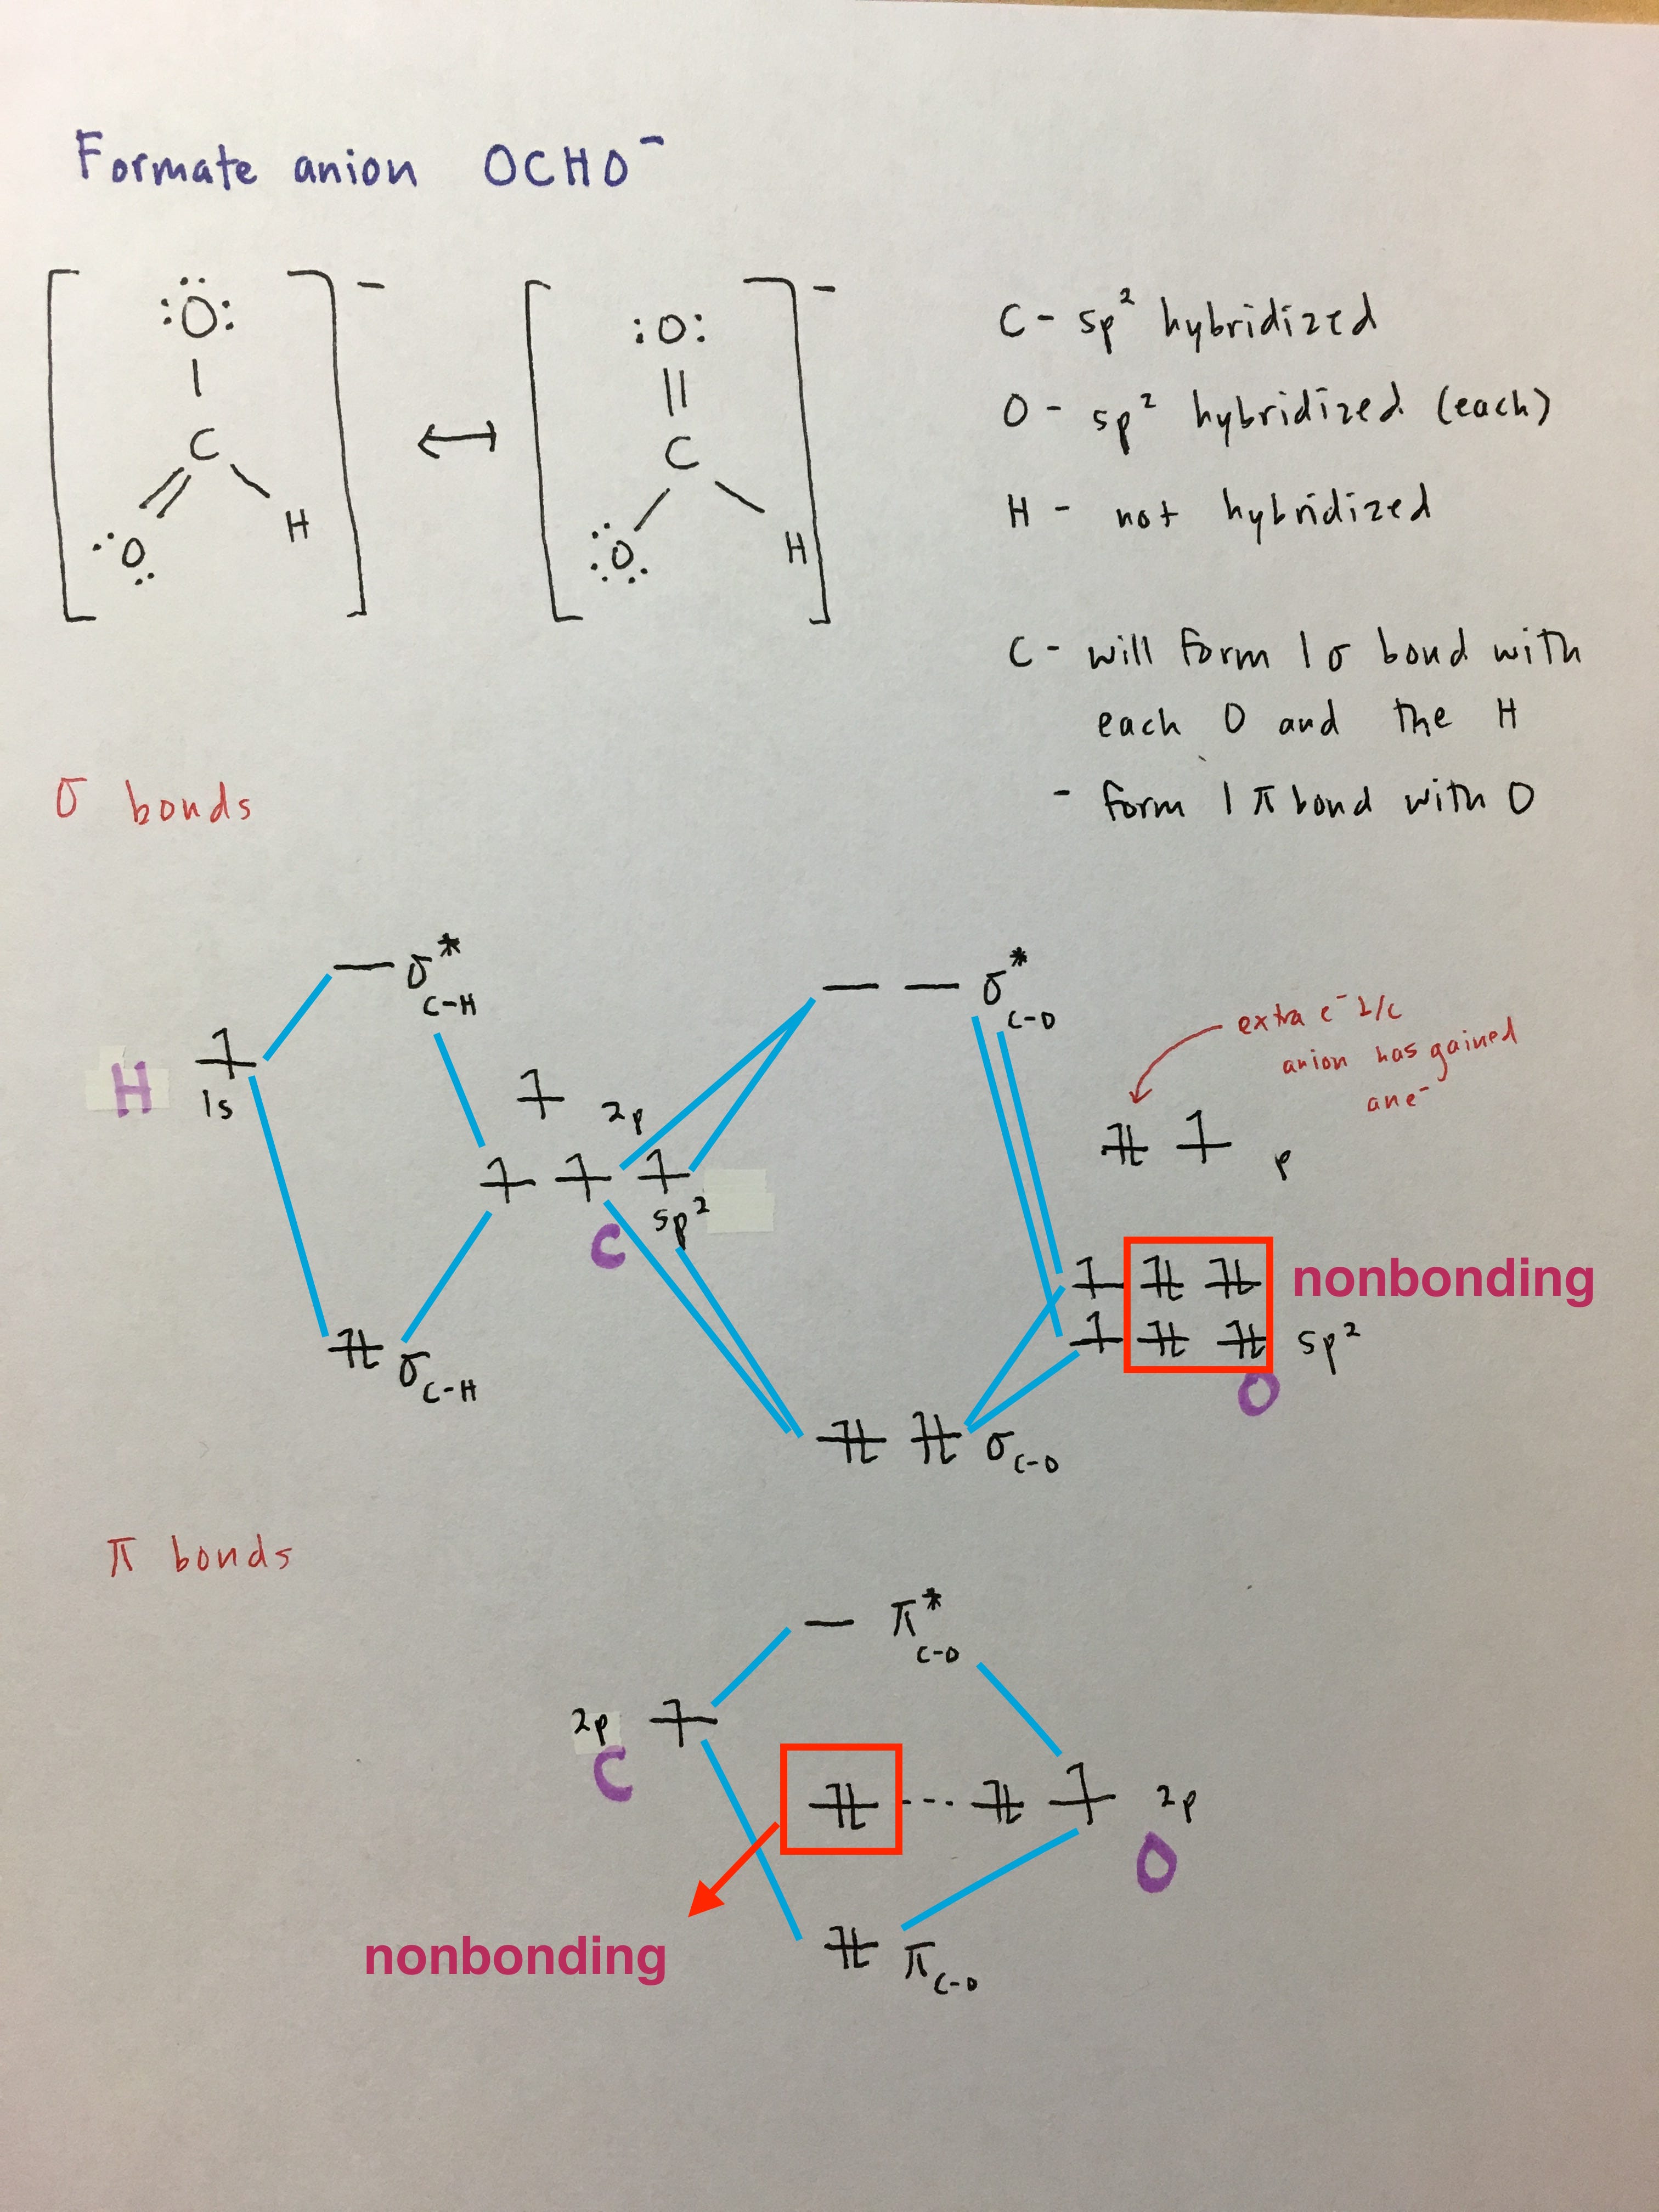 Formate anion OCHO⁻
:Ö: :O:
C C
:O: H :O: H
− ↔ −
C - sp² hybridized
O - sp² hybridized (each)
H - not hybridized
C - will form 1 σ bond with
each O and the H
- form 1 π bond with O
σ bonds
σ* C-H
σ* C-O
extra e⁻ b/c
anion has gained
an e⁻
H 1s
2p
p
sp²
C
nonbonding
sp²
O
σ C-H
σ C-O
π bonds
π* C-O
2p
C
2p
O
nonbonding
π C-O